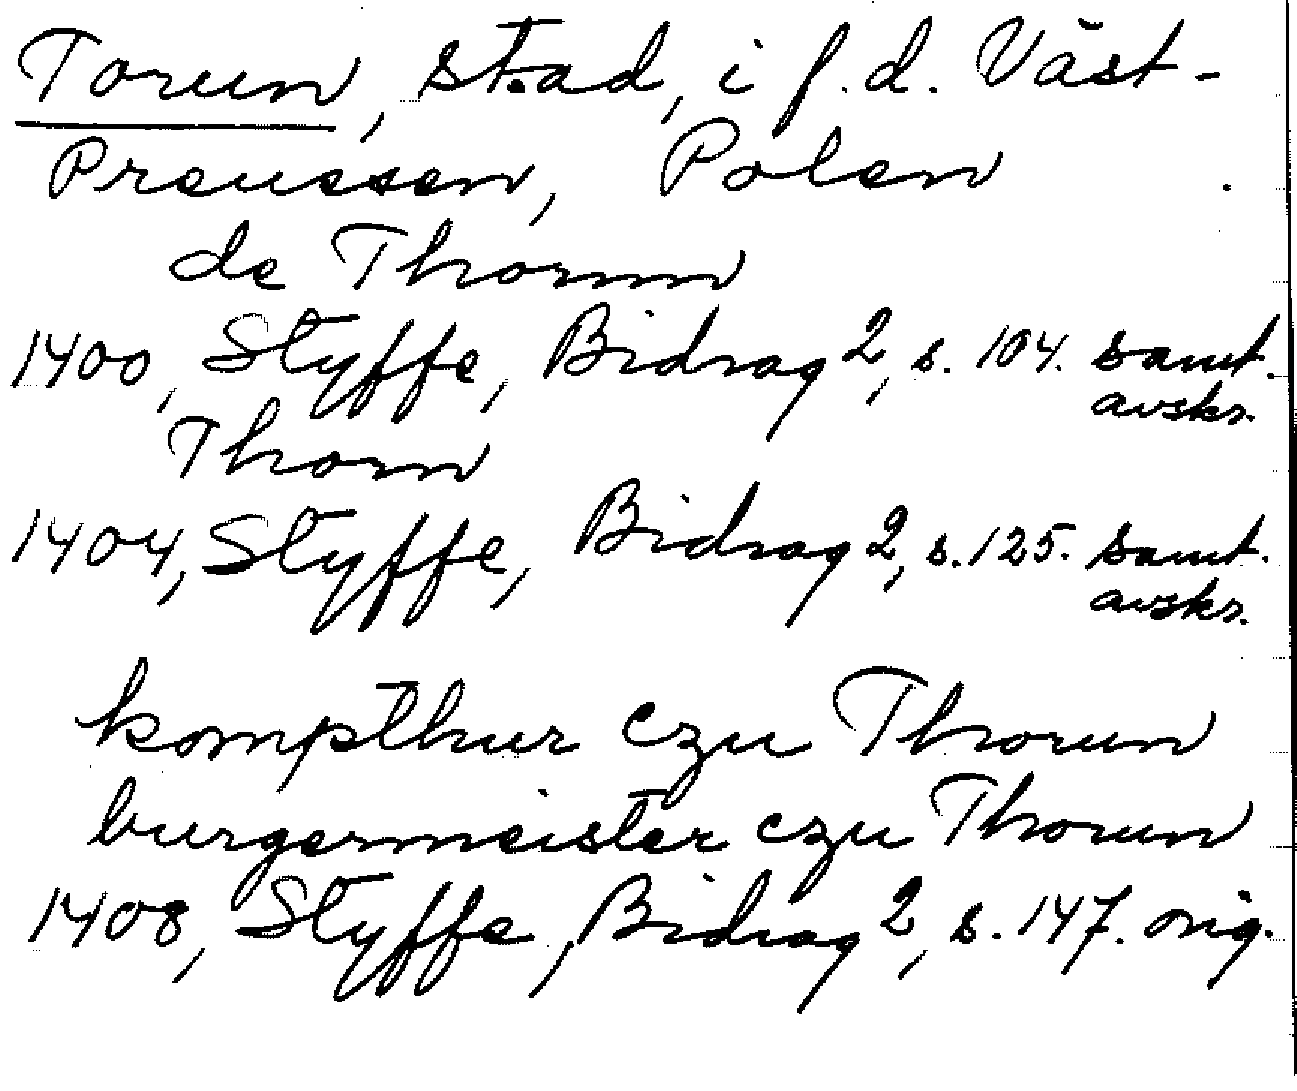 Torun, stad, i f.d. Väst-
Preussen, Polen
de Thorun
1400, Styffe, Bidrag 2, s. 104. samt.
avskr.
Thorn
1404, Styffe, Bidrag 2, s. 125. samt.
avskr.
kompthur czu Thorun
burgermeister czu Thorun
1408, Styffe, Bidrag 2, s. 147. orig.